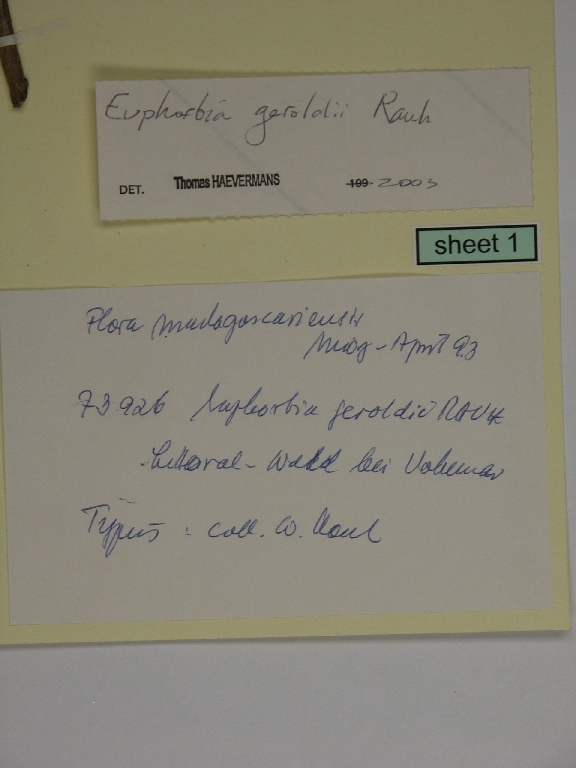 Euphorbia geroldii Rauh
DET. Thomas HAEVERMANS 199 2003
sheet 1
Flora madagascariensis
März-April 93
73926 Euphorbia geroldii RAUH
Littoral-Wald bei Vohemar
Typus : coll. W. Rauh